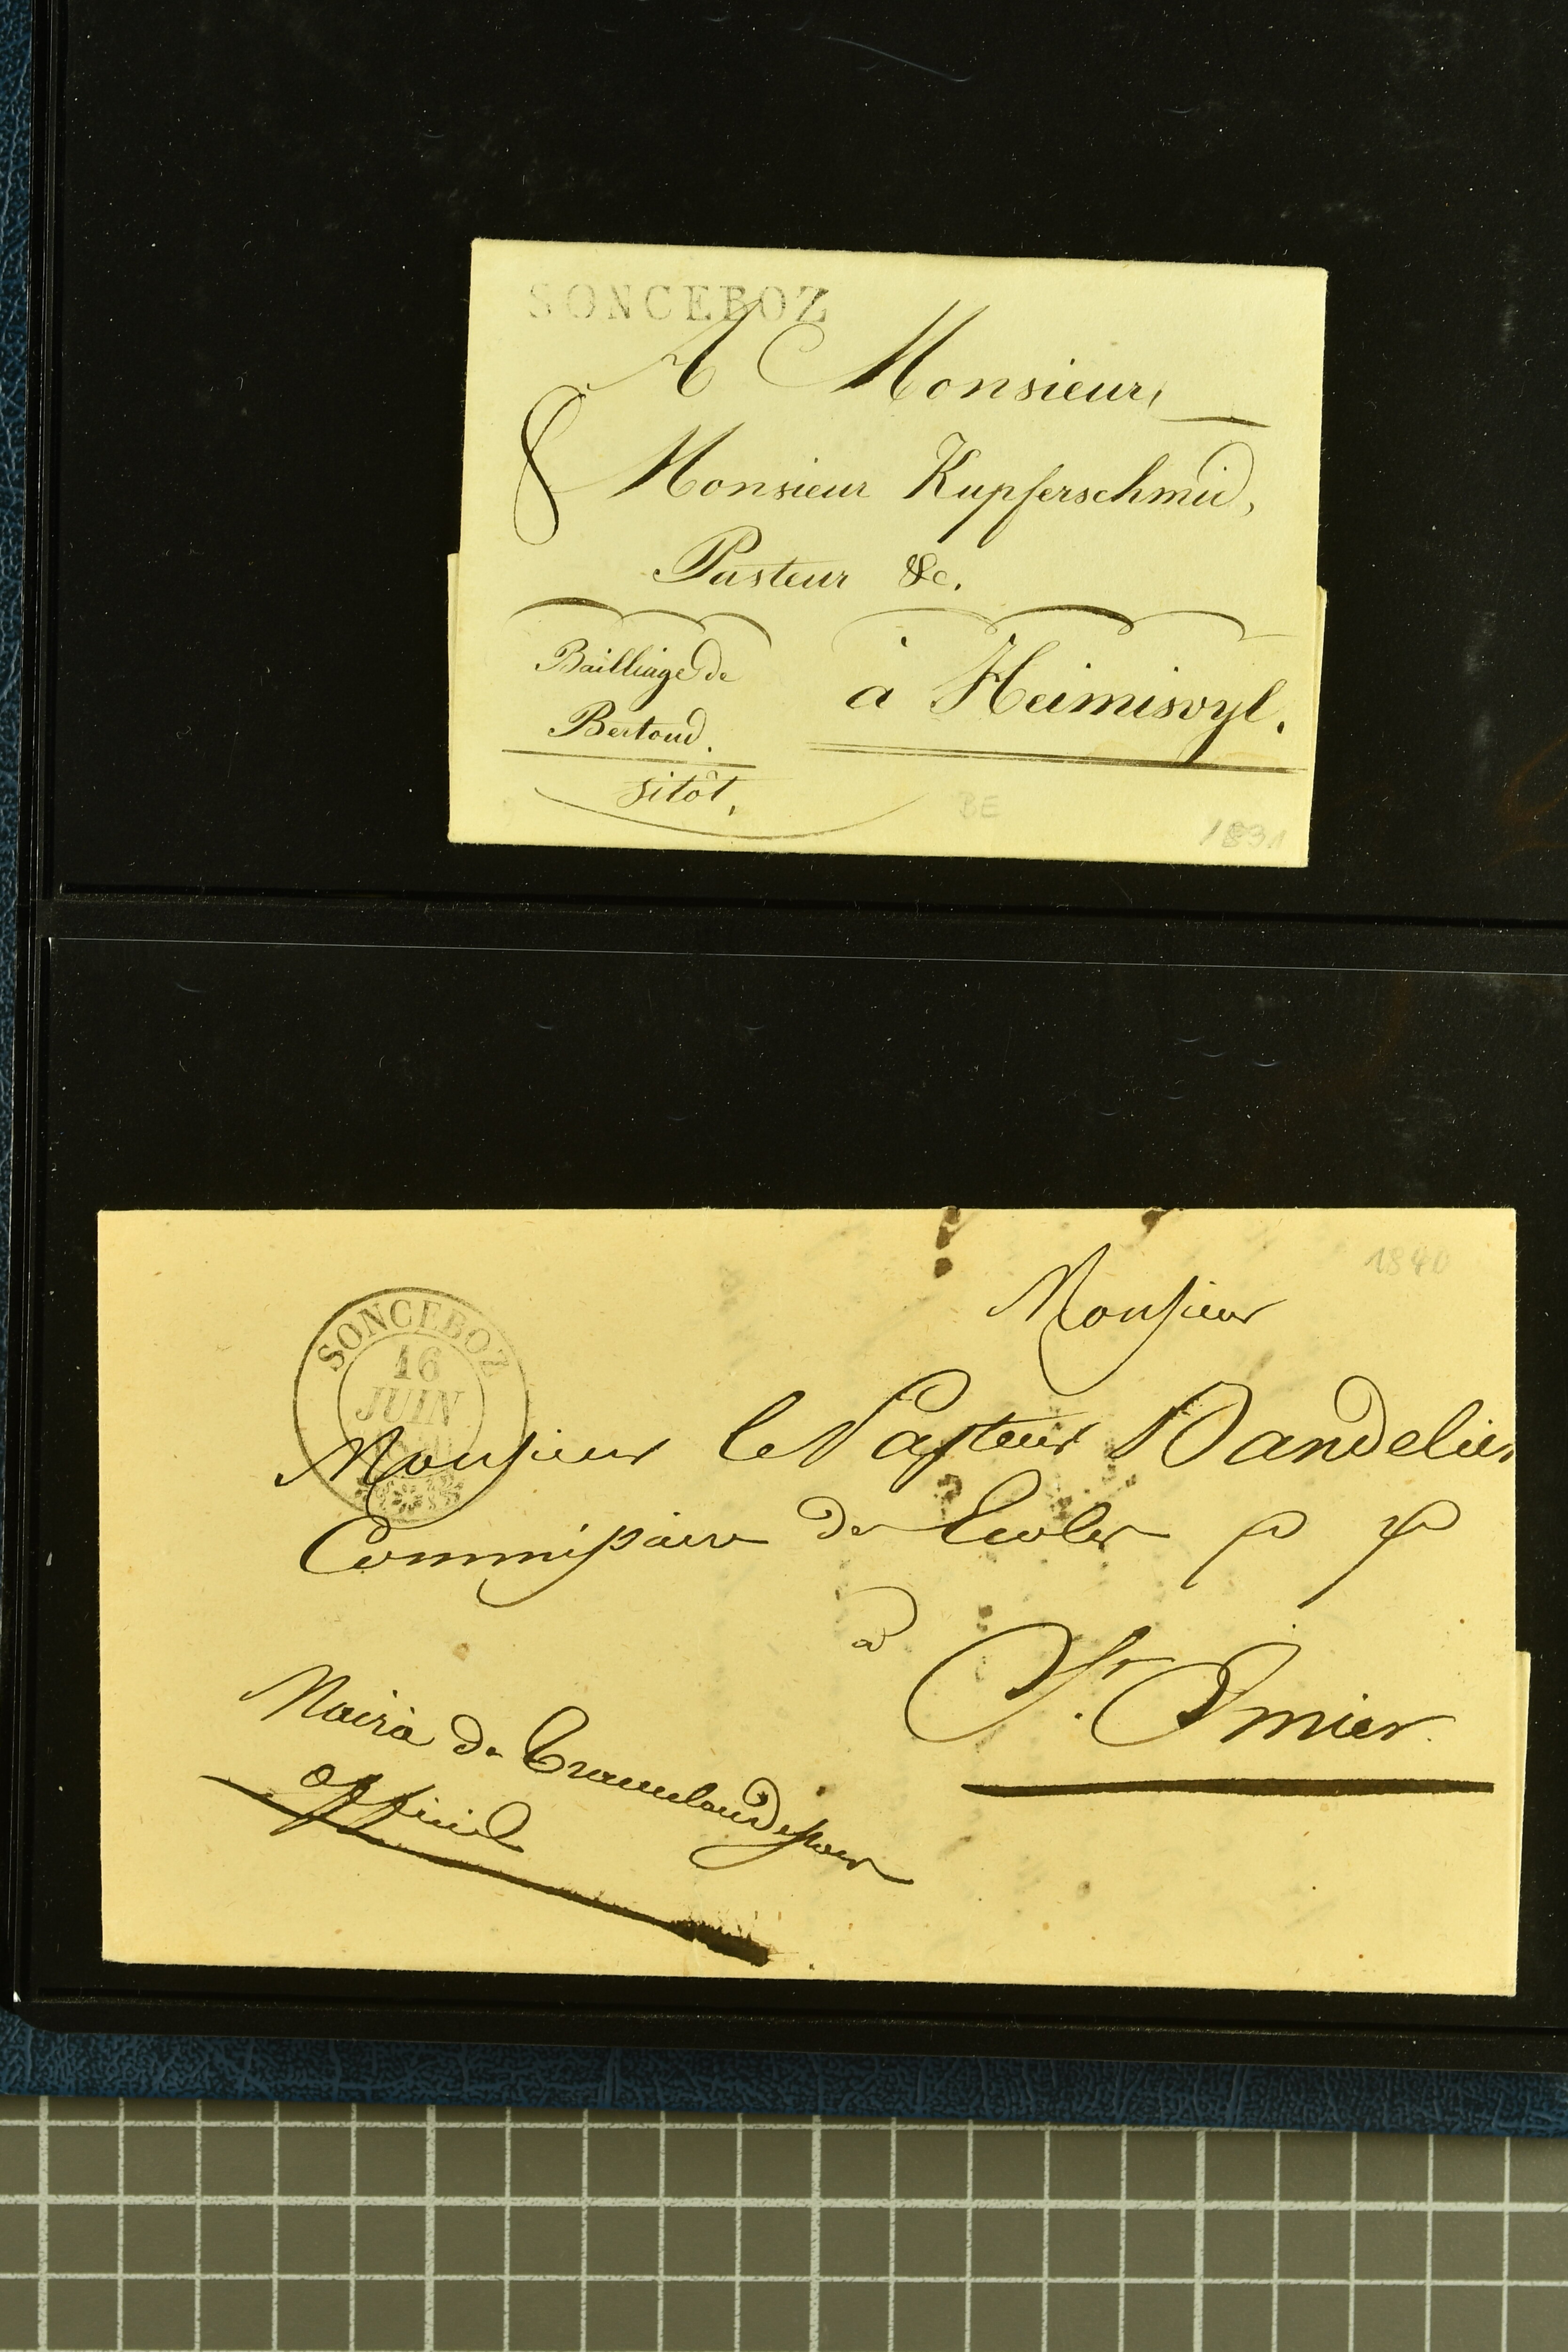 SONCEBOZ
A Monsieur,
8
Monsieur Kupferschmid,
Pasteur &c.
Bailliage de
Bertoud.
sitôt,
à Heimisvyl.
BE
1831
1840
SONCEBOZ
16
JUIN
Monsieur
Monsieur le Pasteur Bandelier
Commissaire de Ecoles
à
St. Imier
Mairie de Tramelandessous
officiel